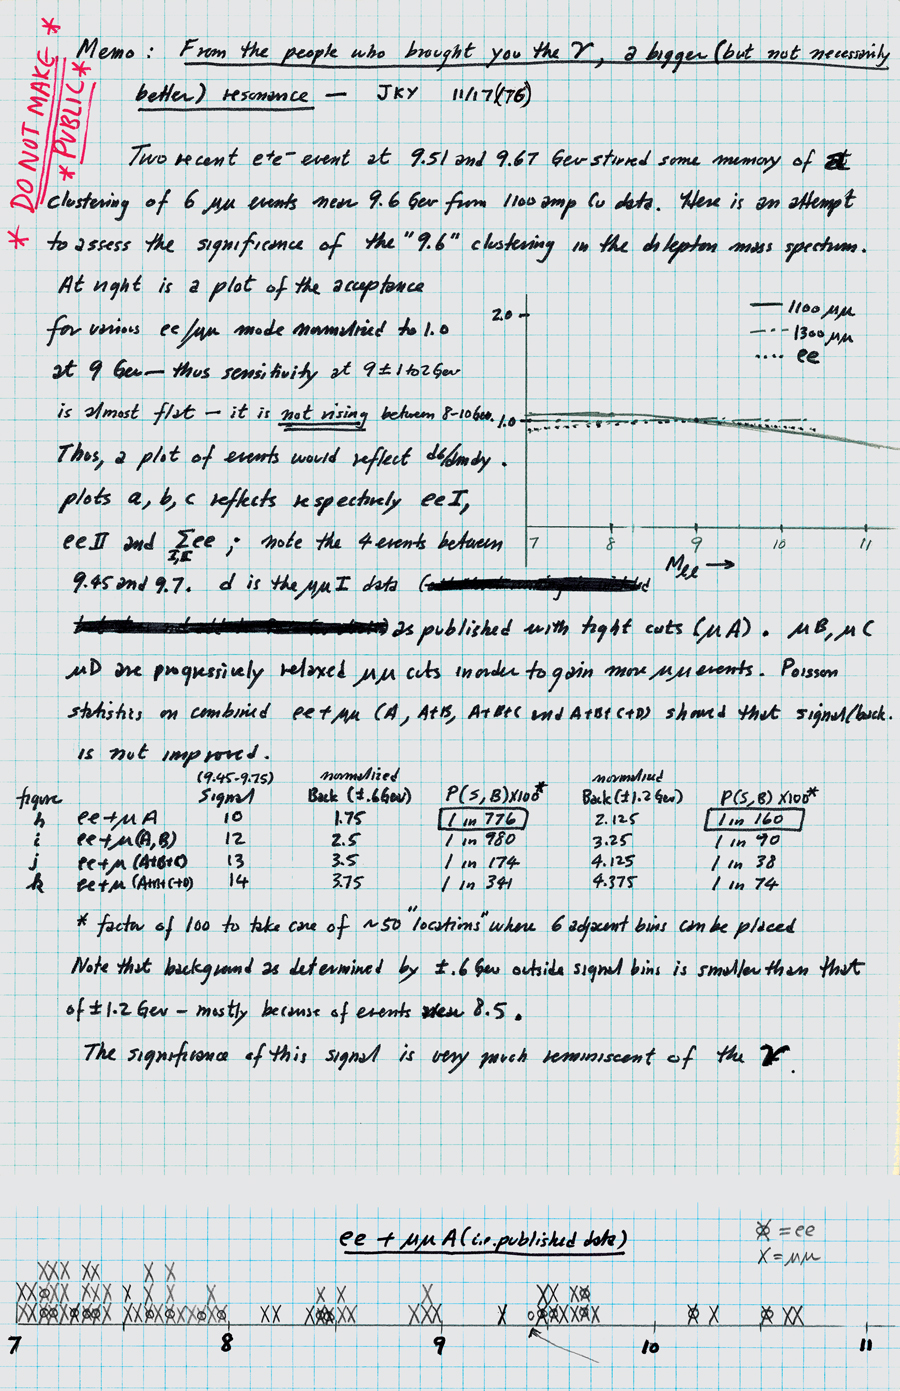 * DO NOT MAKE *
* PUBLIC *
Memo : From the people who brought you the ϒ, a bigger (but not necessarily
better) resonance — JKY 11/17/(76)
Two recent e+e- event at 9.51 and 9.67 Gev stirred some memory of a
clustering of 6 μμ events near 9.6 Gev from 1100 amp Cu data. Here is an attempt
to assess the significance of the "9.6" clustering in the dilepton mass spectrum.
At right is a plot of the acceptance
for various ee/μμ mode normalized to 1.0
at 9 Gev — thus sensitivity at 9 ± 1 to 2 Gev
is almost flat — it is not rising between 8-10 Gev.
Thus, a plot of events would reflect dσ/dmdy .
plots a, b, c reflects respectively ee I,
ee II and Σ ee ; note the 4 events between
I,II
9.45 and 9.7. d is the μμ I data (
as published with tight cuts (μA). μB, μC
μD are progressively relaxed μμ cuts in order to gain more μμ events. Poisson
statistics on combined ee+μμ (A, A+B, A+B+C and A+B+C+D) showed that signal/back.
is not improved.
2.0
1.0
— 1100 μμ
–·– 1300 μμ
···· ee
7 8 9 10 11
Mee →
(9.45-9.75) normalized normalized
figure Signal Back (±.6 Gev) P(S,B)x100* Back (±1.2 Gev) P(S,B)x100*
h ee+μ A 10 1.75 1 in 776 2.125 1 in 160
i ee+μ (A,B) 12 2.5 1 in 980 3.25 1 in 90
j ee+μ (A+B+C) 13 3.5 1 in 174 4.125 1 in 38
k ee+μ (A+B+C+D) 14 3.75 1 in 341 4.375 1 in 74
* factor of 100 to take care of ~50 "locations" where 6 adjacent bins can be placed
Note that background as determined by ±.6 Gev outside signal bins is smaller than that
of ±1.2 Gev – mostly because of events near 8.5.
The significance of this signal is very much reminiscent of the ϒ.
ee + μμ A (i.e. published data)
= ee
X = μμ
7 8 9 10 11